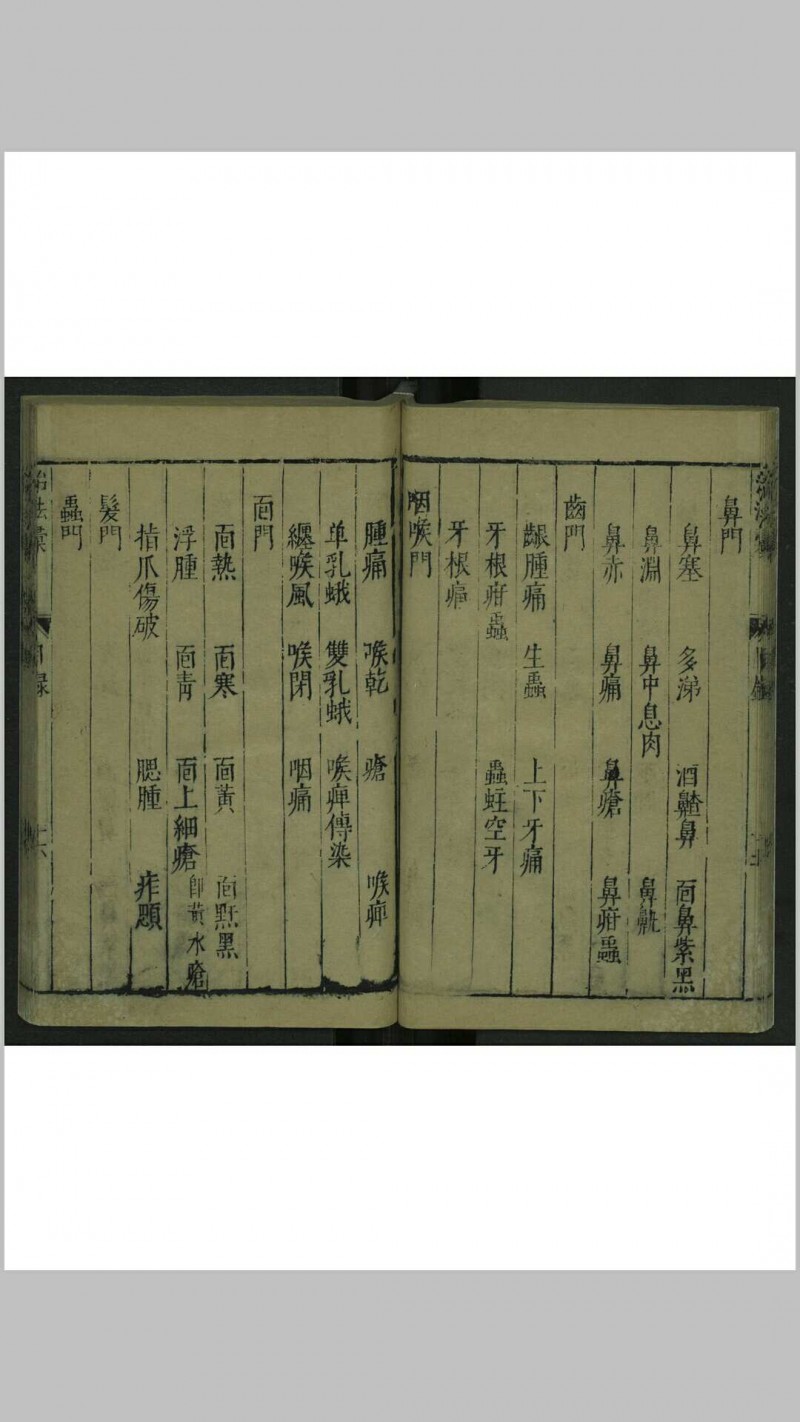 鼻門
鼻塞 多涕 酒齄鼻 面鼻紫黑
鼻淵 鼻中息肉 鼻鼽
鼻赤 鼻痛 鼻瘡 鼻疳䘌
齒門
齦腫痛 生䘌 上下牙痛
牙根疳䘌 蟲蛀空牙
牙根
咽喉門
腫痛 喉乾 瘡 喉痺
单乳蛾 雙乳蛾 喉痺傳染
纏喉風 喉閉 咽痛
面門
面熱 面寒 面黃 面䵟黑
浮腫 面青 面上細瘡 即黃水瘡
指爪傷破 腮腫 痄
髮門
蟲門
目錄